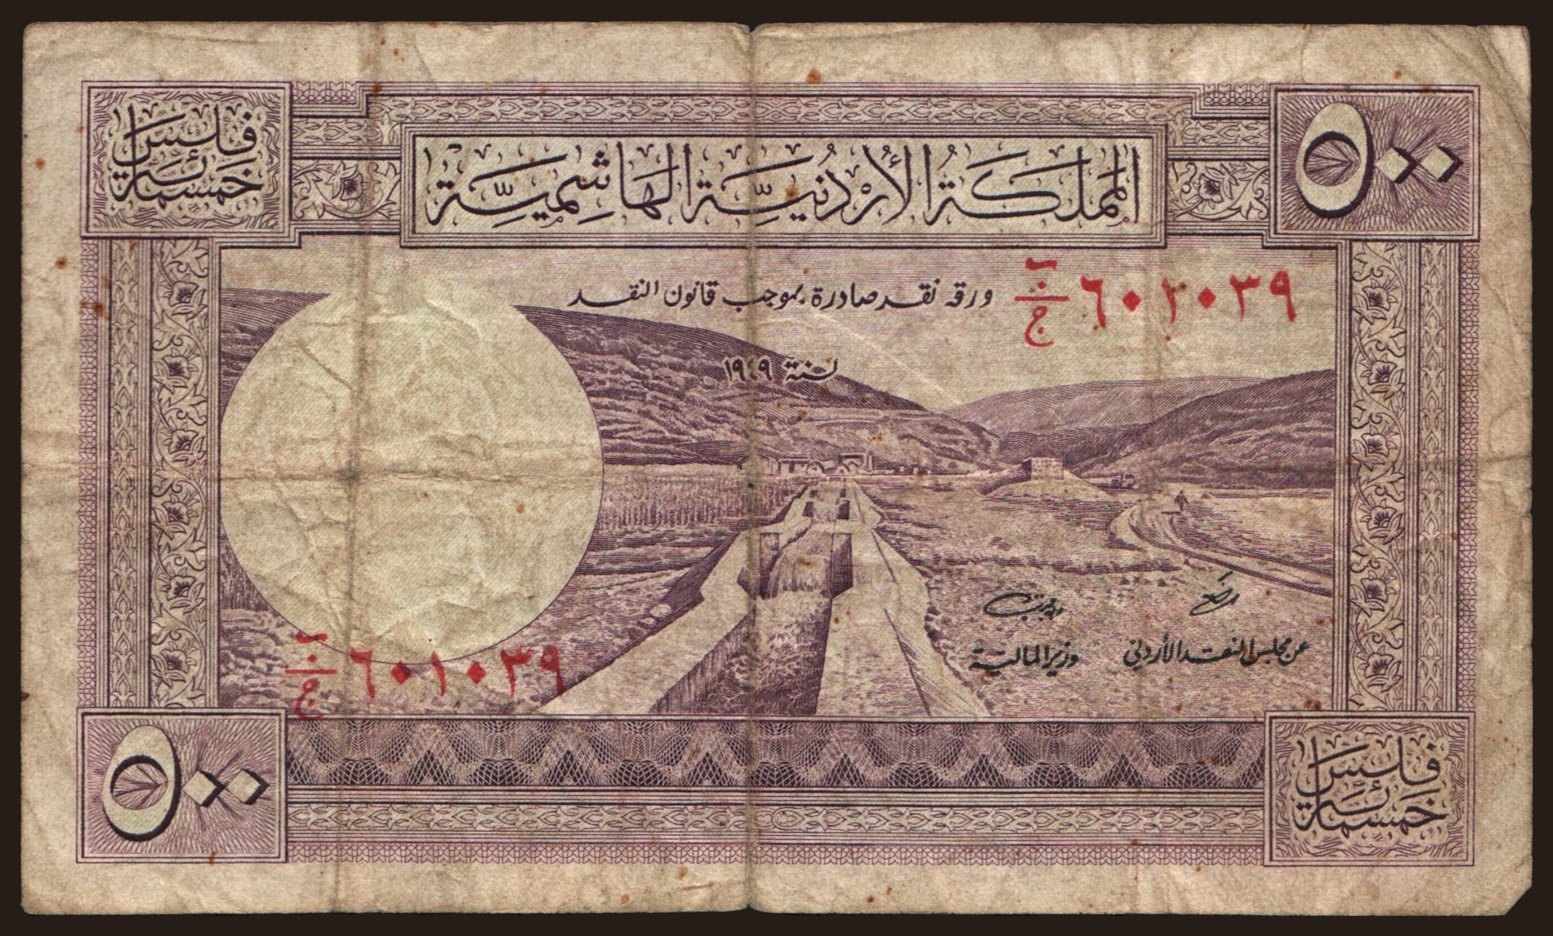 خمسمائة فلس
المملكة الأردنية الهاشمية
٥٠٠
ورقة نقد صادرة بموجب قانون النقد
ب/ج ٦٠١٠٣٩
لسنة ١٩٤٩
وزير المالية
عن مجلس النقد الأردني
ب/ج ٦٠١٠٣٩
٥٠٠
خمسمائة فلس